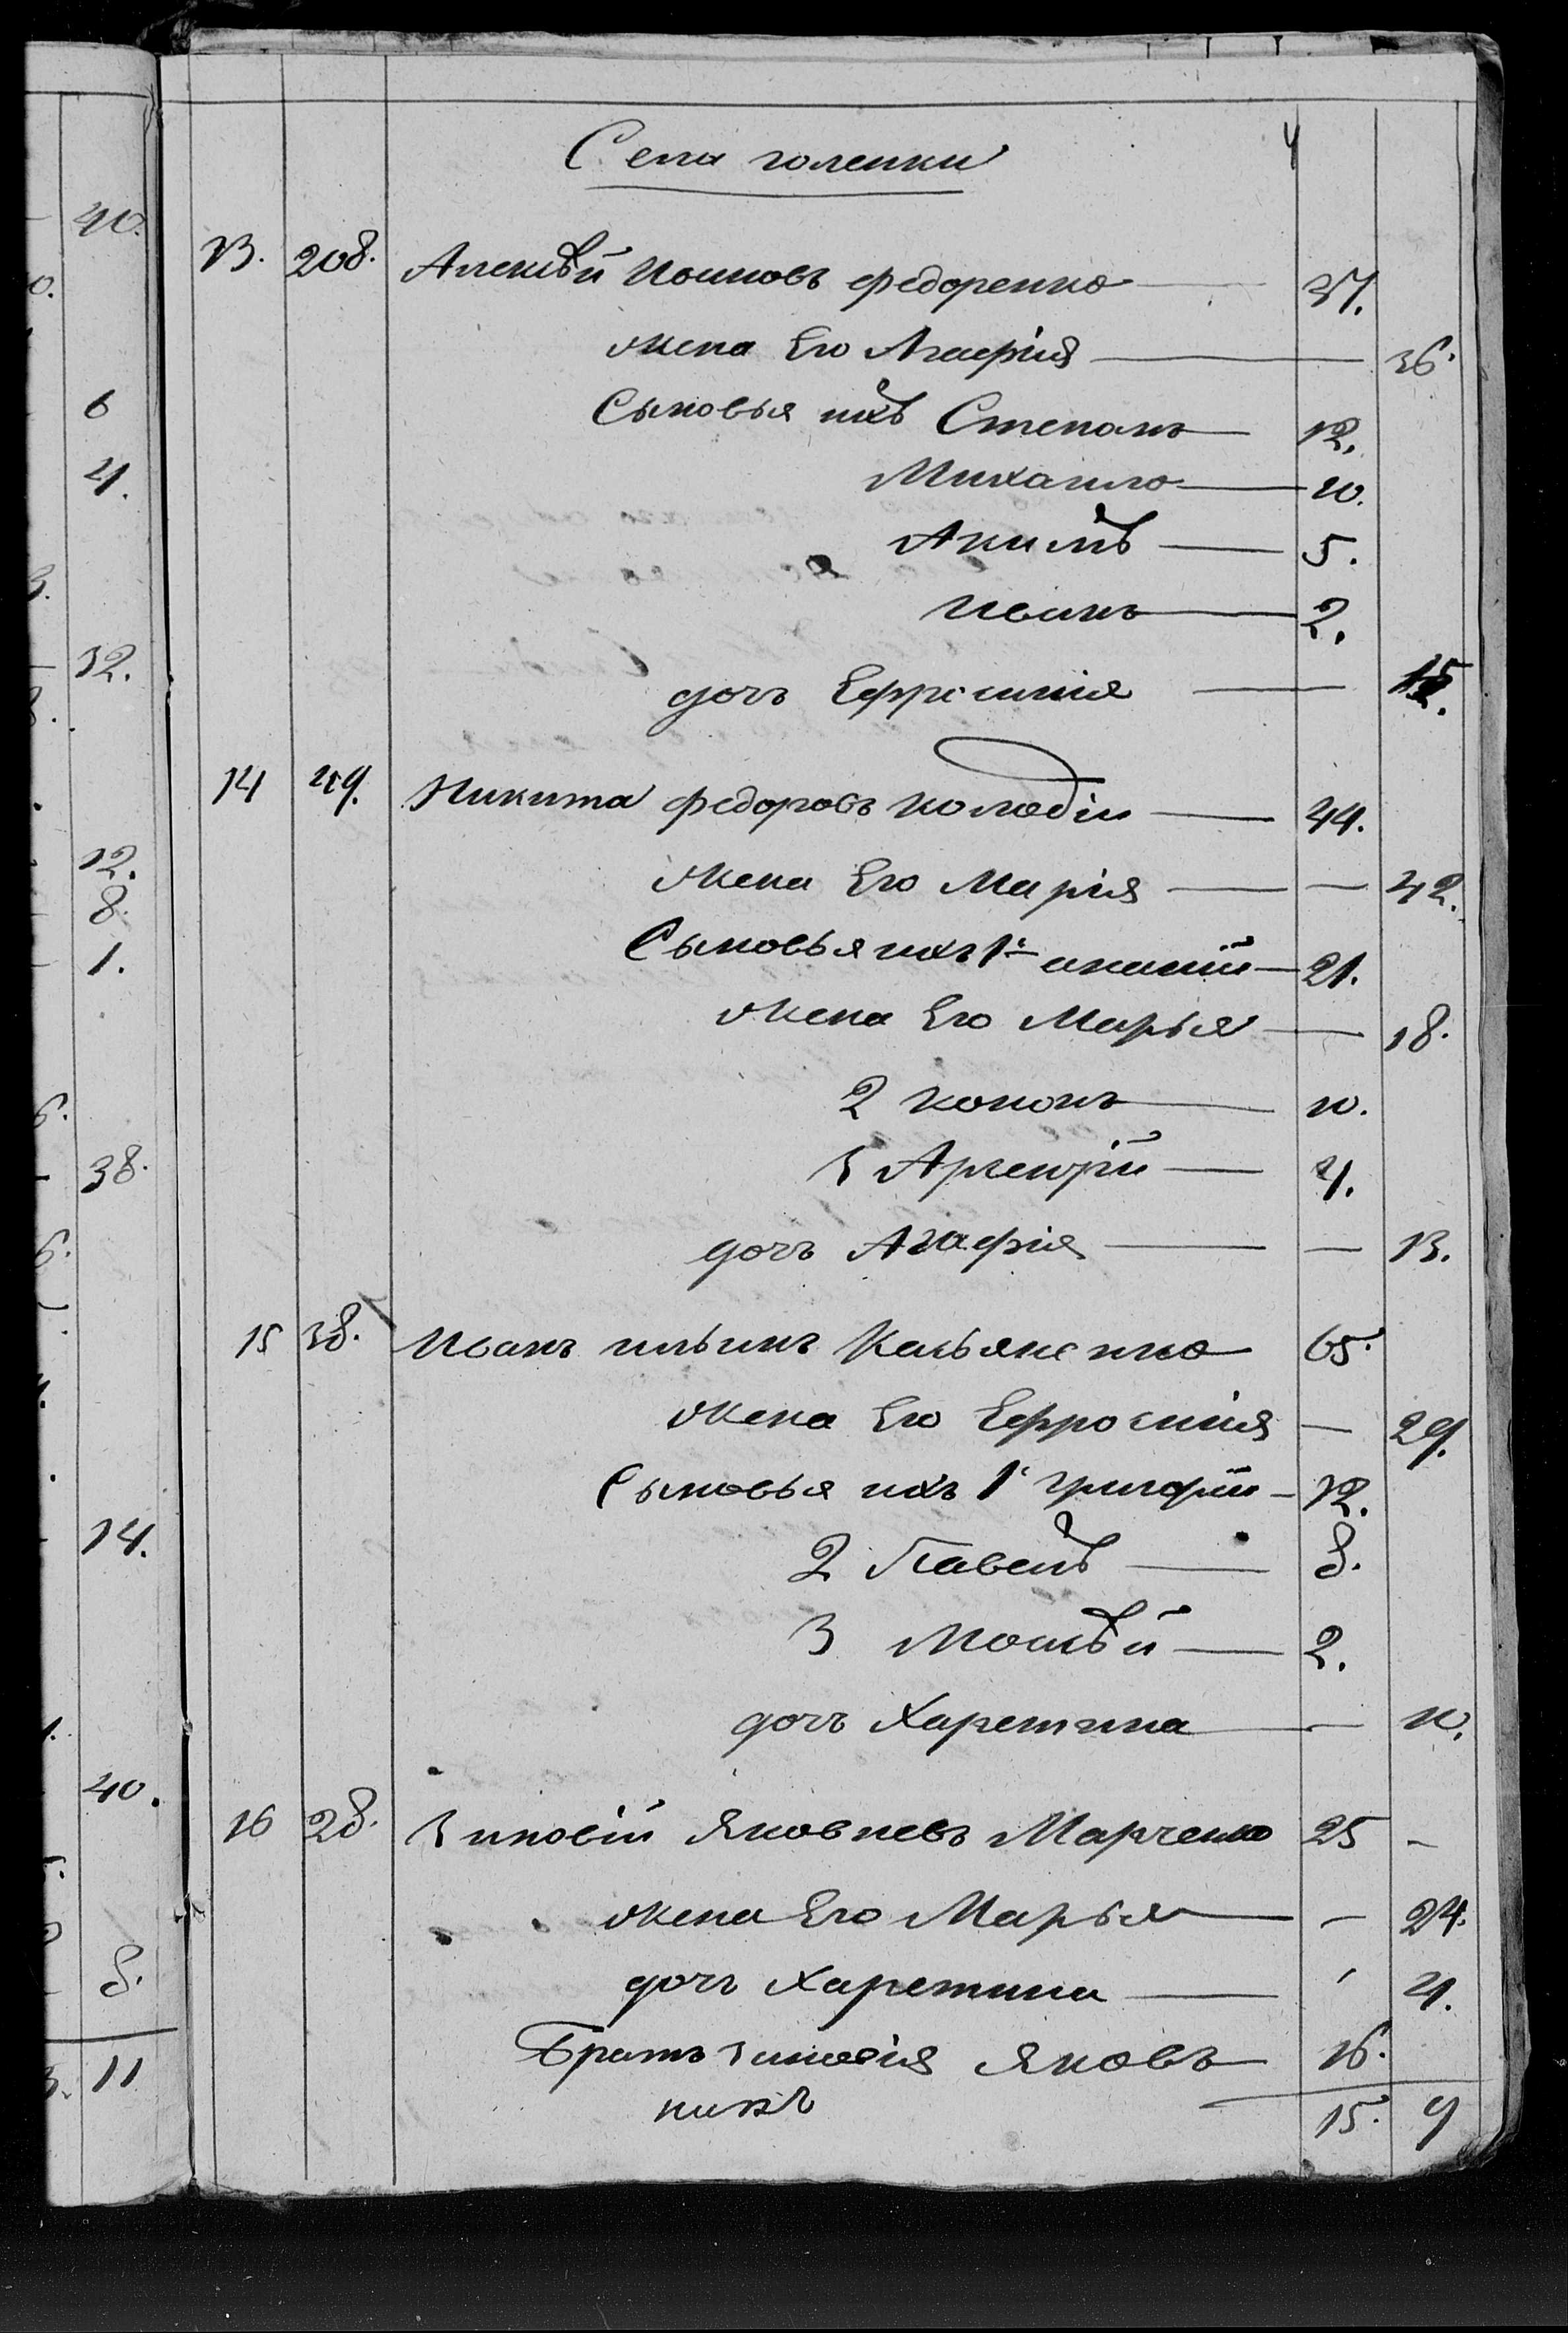 40.
6
4.
32.
12.
8.
1.
38.
14.
40.
8.
11
4
Села голенки
13. 208. Алексѣй Иоановъ Федоренко 37.
жена Его Агафія 36.
Сыновья ихъ Степанъ 12.
Михаило 10.
Акимъ 5.
Иванъ 2.
дочъ Ефросинія
14 49. Никита Федоровъ Колодій 44.
жена Его Марія 42.
Сыновья ихъ 1й акакій 21.
жена Его Марья 18.
2 кононъ 10.
3 Арсеній 4.
дочъ Агафія 13.
15 38. Иванъ ильинъ Касьяненко 65.
жена Его Ефросинія 29.
Сыновья ихъ 1й григорій 12.
2 Павелъ 8.
3 Мосѣй 2.
дочъ Харетина 10.
16 28. Зиновій Яковлевъ Марченко 25 —
жена Его Марья — 24.
дочъ Харетина 4.
Братъ зиновія Яковъ 16.
15. 9